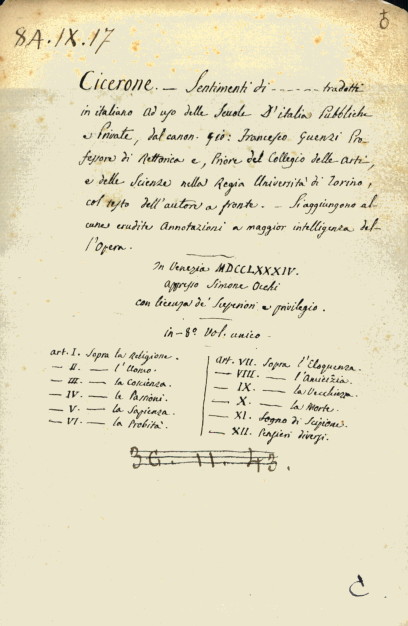 8A.IX.17
Cicerone. — Sentimenti di ------ tradotti
in italiano ad uso delle Scuole D'italia Pubbliche
e Private, dal canon. Gio: Francesco Guenzi Pro-
fessore di Rettorica e, Priore del Collegio delle Arti,
e delle Scienze nella Regia Università di Torino,
col testo dell'autore a fronte. — Si aggiungono al-
cune erudite Annotazioni a maggior intelligenza del-
l'Opera.
In Venezia MDCCLXXXIV.
appresso Simone Occhi
con licenza de' Superiori e privilegio.
in-8º Vol. unico.
art. I. Sopra la Religione.
— II. — l'Uomo.
— III. — la Coscienza.
— IV. — le Passioni.
— V. — la Sapienza.
— VI. — la Probità.
art. VII. Sopra l'Eloquenza.
— VIII. — l'Amicizia.
— IX. — la Vecchiezza.
— X. — la Morte.
— XI. Sogno di Scipione.
— XII. Pensieri diversi.
36. 11. 43.
C